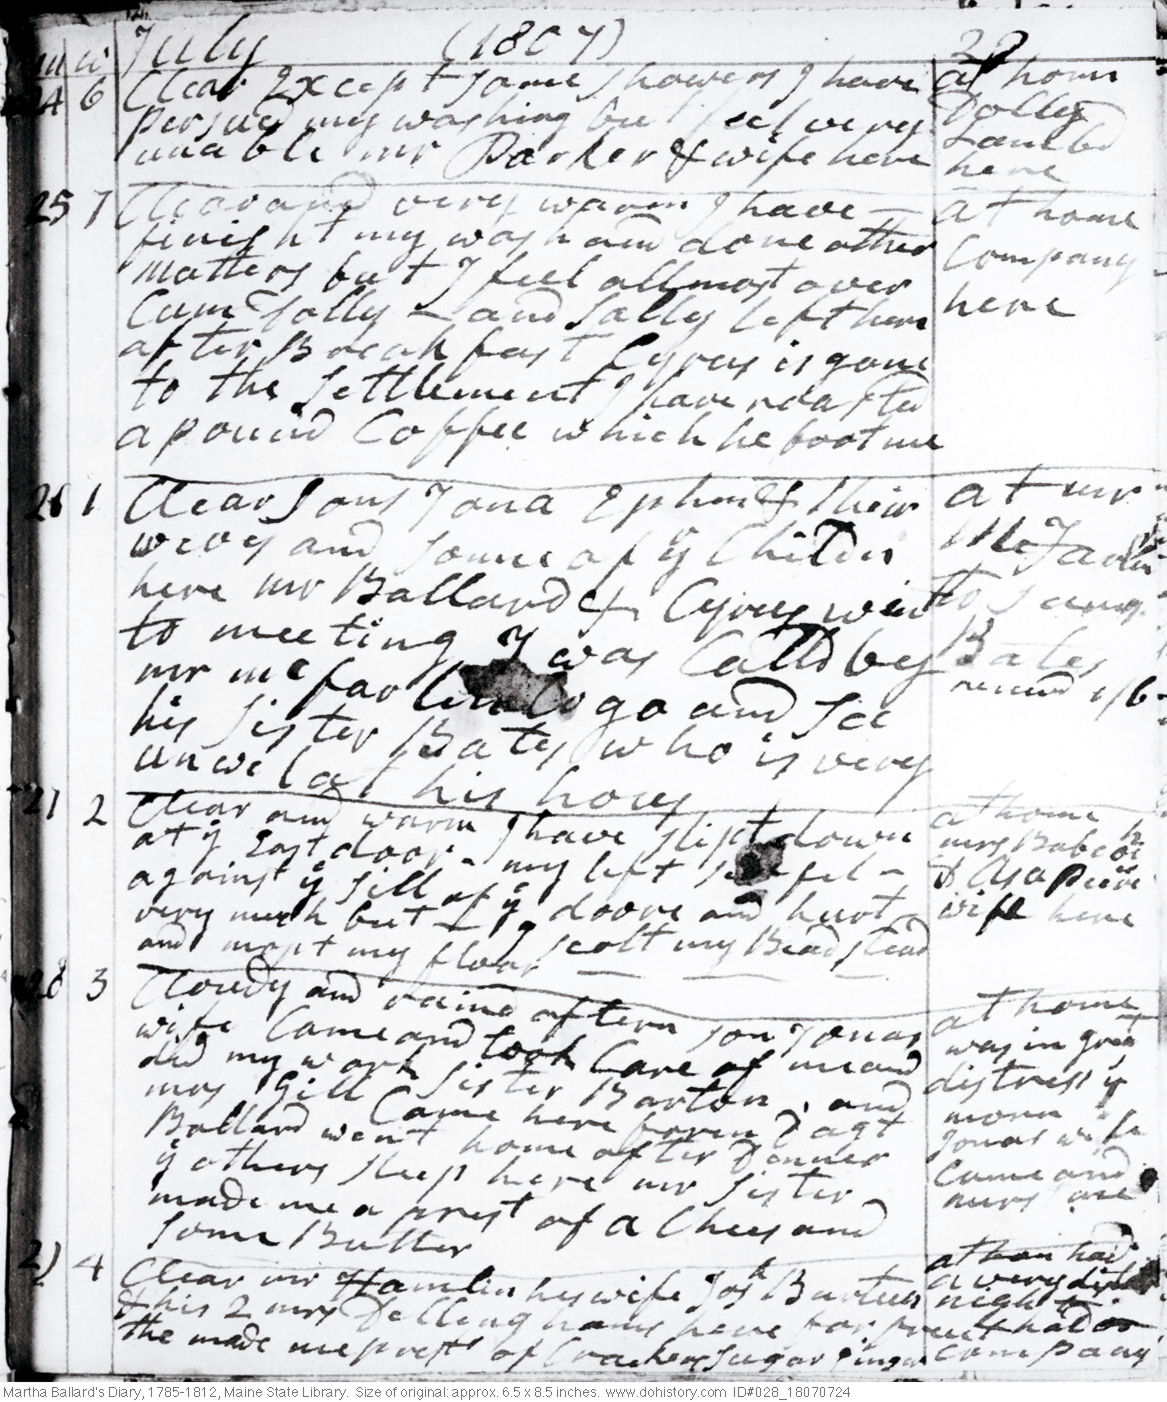 m w July (1807) 22
24 6 Clear Except some showers I have at home
persued my washing but feel very Dolly
unable mr Parker & wife here Lambd
here
25 7 Clear and very warm I have at home
finisht my wash and done other Company
matters but I feel allmost over here
Cum Dolly and Sally left here
after Breakfast Cyrus is gone
to the Settlement I have roasted
a pound Coffee which he boot me
26 1 Clear Sons Jona Ephm & their at mr
wives and some of ÿ Childn McFarlin
here mr Ballard & Cyrus went to
to meeting I was Calld by Bates
mr mcfarlin to go and See receivd 1/6
his Sister Bates who is very
unwel at his hous
27 2 Clear and warm I have slipt down at home
at ÿ East door my left mrs Babcok
against ÿ sill of ÿ doore and hurt & Asa Pierc
very much but I scolt my Bead stead wife here
and mopt my floor
28 3 Cloudy and raind aftern son Jonas at home
wife Came and took Care of me and was in great
did my work Sister Barton and distress ÿ
mrs Gill Came here foren Dagt morn
Ballard went home after Dinner Jonas wife
ÿ others sleep here mr Sister Came and
made me a prest of a Chees and nurs me
some Butter
29 4 Clear mr Hamlin his wife Josh Burten at hom had
& his 2 mrs Dellinghams here for fruit a very
the made me prest of Crackers Sugar ginger night
I had
company
Martha Ballard's Diary, 1785-1812, Maine State Library. Size of original: approx. 6.5 x 8.5 inches. www.dohistory.com ID#028_18070724